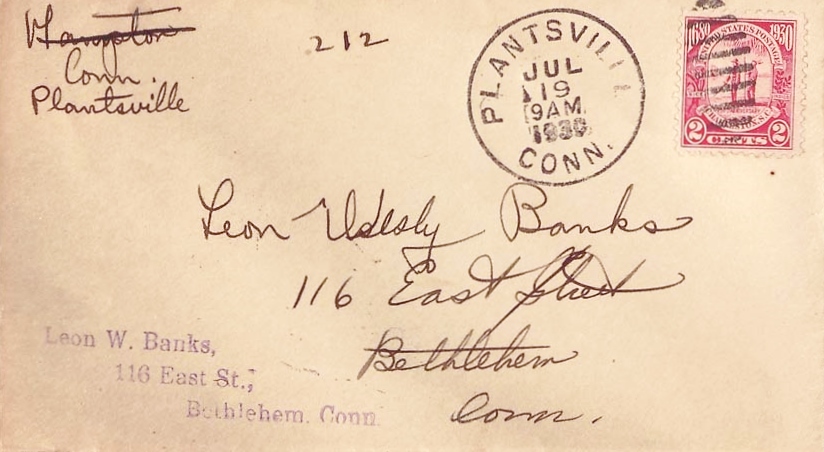 Hampton
Conn.
Plantsville
212
PLANTSVILLE
JUL
19
9AM
1930
CONN.
1680 1930
UNITED STATES POSTAGE
CHARLESTON, S.C.
2 CENTS 2
Leon Weesly Banks
116 East Street
Bethlehem
Conn.
Leon W. Banks,
116 East St.,
Bethlehem, Conn.